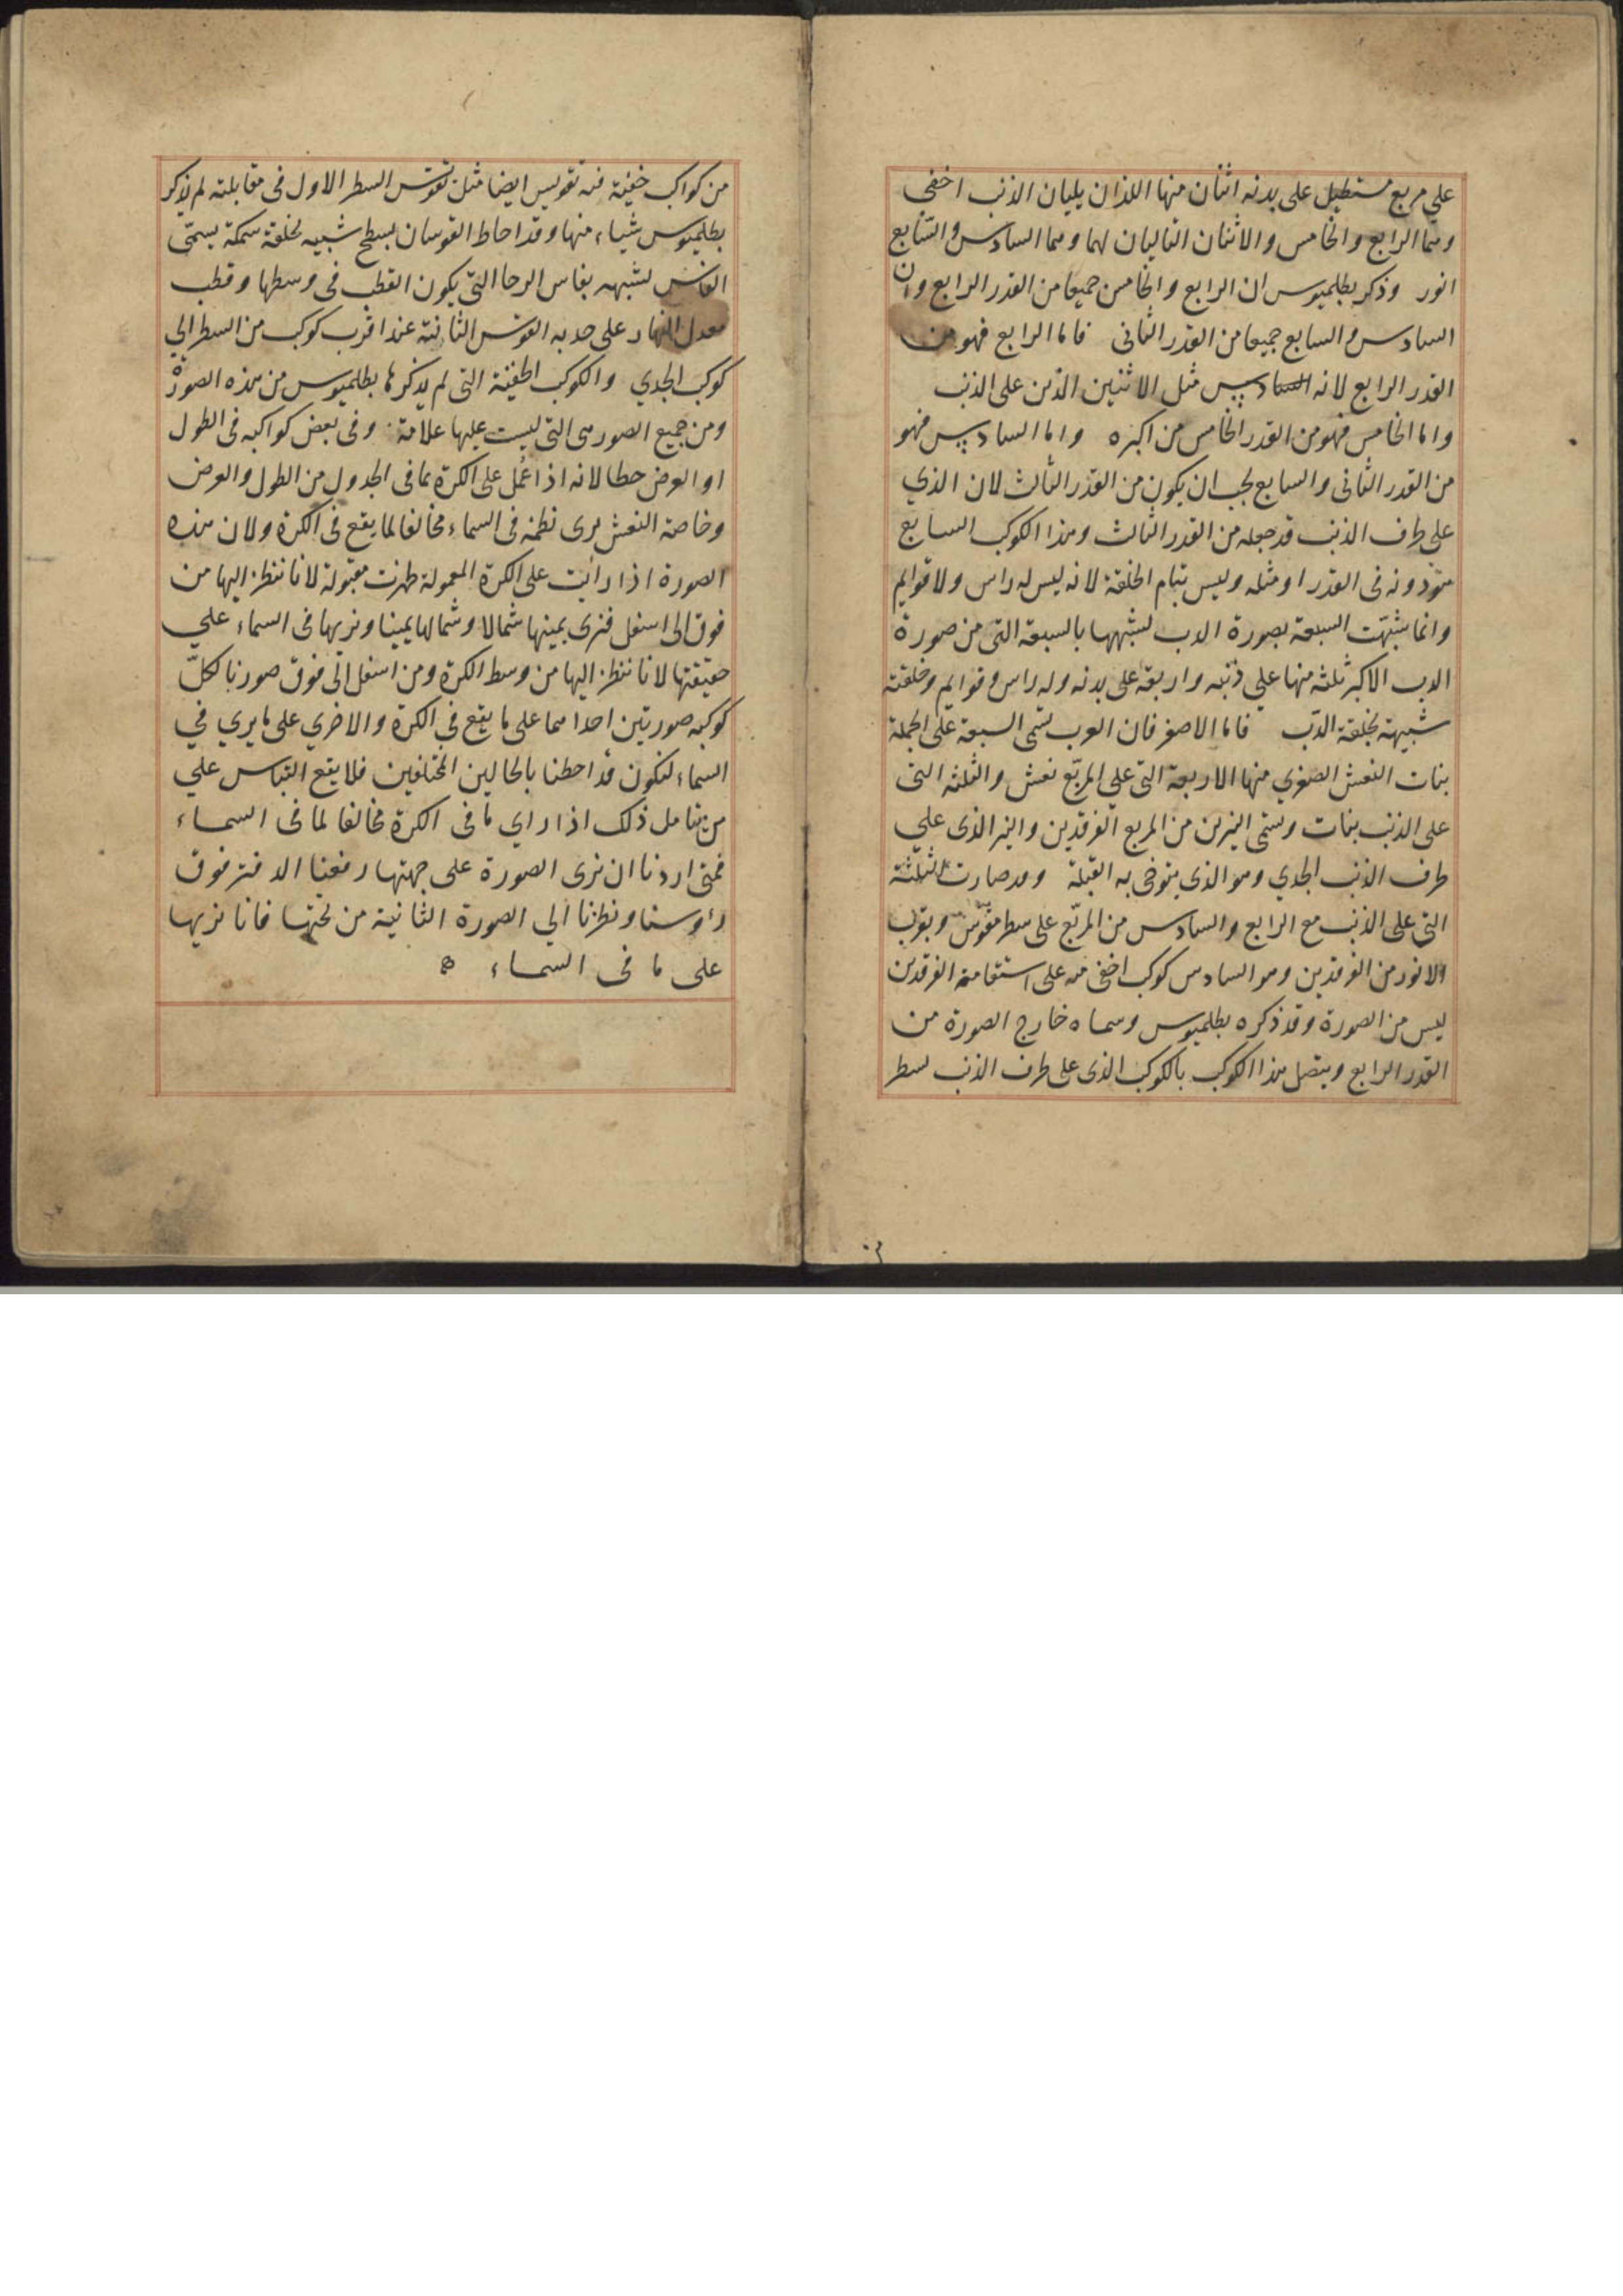 على مربع مستطيل على بدنه اثنان منها اللذان يليان الذنب اخفى
وهما الرابع والخامس والاثنان التاليان لهما وهما السادس والسّابع
انور وذكر بطلميوس ان الرابع والخامس جميعا من القدر الرابع وان
السادس والسابع جميعا من القدر الثانى فاما الرابع فهو من
القدر الرابع لانه السادس مثل الاثنين الذين على الذنب
واما الخامس فهو من القدر الخامس من اكبره واما السادس فهو
من القدر الثانى والسابع يجب ان يكون من القدر الثالث لان الذي
على طرف الذنب قد جعله من القدر الثالث وهذا الكوكب السابع
دونه فى القدر او مثله وليس بتمام الخلقة لانه ليس له راس ولا قوايم
وانما شبّهت السبعة بصورة الدب لشبهها بالسبعة التى من صورة
الدب الاكبر ثلثه منها على ذنبه واربعة على بدنه وله راس وقوايم وخلقته
شبيهة بخلقة الدّب فاما الاصغر فان العرب تسمى السبعة على الجملة
بنات النعش الصغري منها الاربعة التى على المربّع نعش والثلثه التى
على الذنب بنات وتسمى النيرين من المربع الفرقدين والنير الذى علي
طرف الذنب الجدي وهو الذي يتوخى به القبلة وقد صارت الثلثة
التى على الذنب مع الرابع والسادس من المربّع على سطر مقوّس وبقرب
الانور من الفرقدين وهو السادس كوكب اخفى منه على استقامة الفرقدين
ليس من الصورة وقد ذكره بطلميوس وسماه خارج الصورة من
القدر الرابع ويتصل هذا الكوكب بالكوكب الذى على طرف الذنب بسطر
من كواكب خفية فيه تقويس ايضا مثل تقوّس السطر الاول فى مقابلته لم يذكر
بطلميوس شيا، منها وقد احاط القوسان بسطح شبيه بخلقة سمكة يسمّى
الفاس لشبهه بفاس الرحا التى يكون القطب فى وسطها وقطب
معدل النهار على حدبه القوس الثانية عند اقرب كوكب من السطر الي
كوكب الجدي والكوكب الخفية التى لم يذكرها بطلميوس من هذه الصورة
ومن جميع الصور هى التى ليست عليها علامة وفى بعض كواكبه فى الطول
او العرض خطا لانه اذا عُمل على الكرة بما فى الجدول من الطول والعرض
وخاصة النعش يرى نظمه فى السماء مخالفا لما يقع فى الكرة ولان هذه
الصورة اذا رأيت على الكرة المعمولة ظهرت مقبولة لانا ننظر اليها من
فوق الى اسفل فنرى يمينها شمالا وشمالها يمينا ونريها فى السماء علي
حقيقتها لانا ننظر اليها من وسط الكرة ومن اسفل الى فوق صورنا لكلّ
كوكبه صورتين احداهما على ما يقع فى الكرة والاخري على ما يري في
السماء لنكون قد احطنا بالحالين المختلفين فلا يقع التباس علي
من يتامل ذلك اذا راي ما فى الكرة مخالفا لما فى السماء
فمتى اردنا ان نرى الصورة على جهتها رفعنا الدفتر فوق
راوسنا ونظرنا الي الصورة الثانية من تحتها فانا نريها
على ما فى السماء